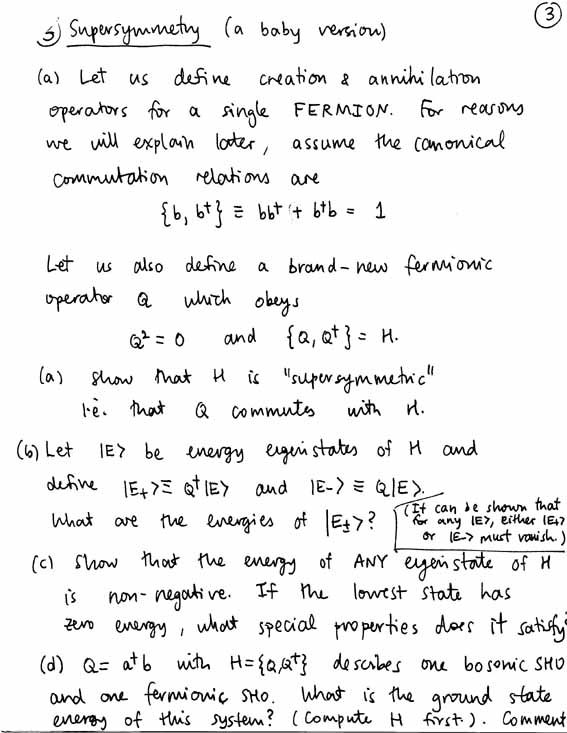 3
5) Supersymmetry (a baby version)
(a) Let us define creation & annihilation
operators for a single FERMION. For reasons
we will explain later, assume the canonical
commutation relations are
{b, b†} ≡ bb† + b†b = 1
Let us also define a brand-new fermionic
operator Q which obeys
Q² = 0 and {Q, Q†} = H.
(a) Show that H is "supersymmetric"
i.e. that Q commutes with H.
(b) Let |E> be energy eigenstates of H and
define |E₊> ≡ Q†|E> and |E₋> ≡ Q|E>.
What are the energies of |E±>?
(It can be shown that
for any |E>, either |E₊>
or |E₋> must vanish.)
(c) Show that the energy of ANY eigenstate of H
is non-negative. If the lowest state has
zero energy, what special properties does it satisfy?
(d) Q = a†b with H={Q,Q†} describes one bosonic SHO
and one fermionic SHO. What is the ground state
energy of this system? (Compute H first). Comment